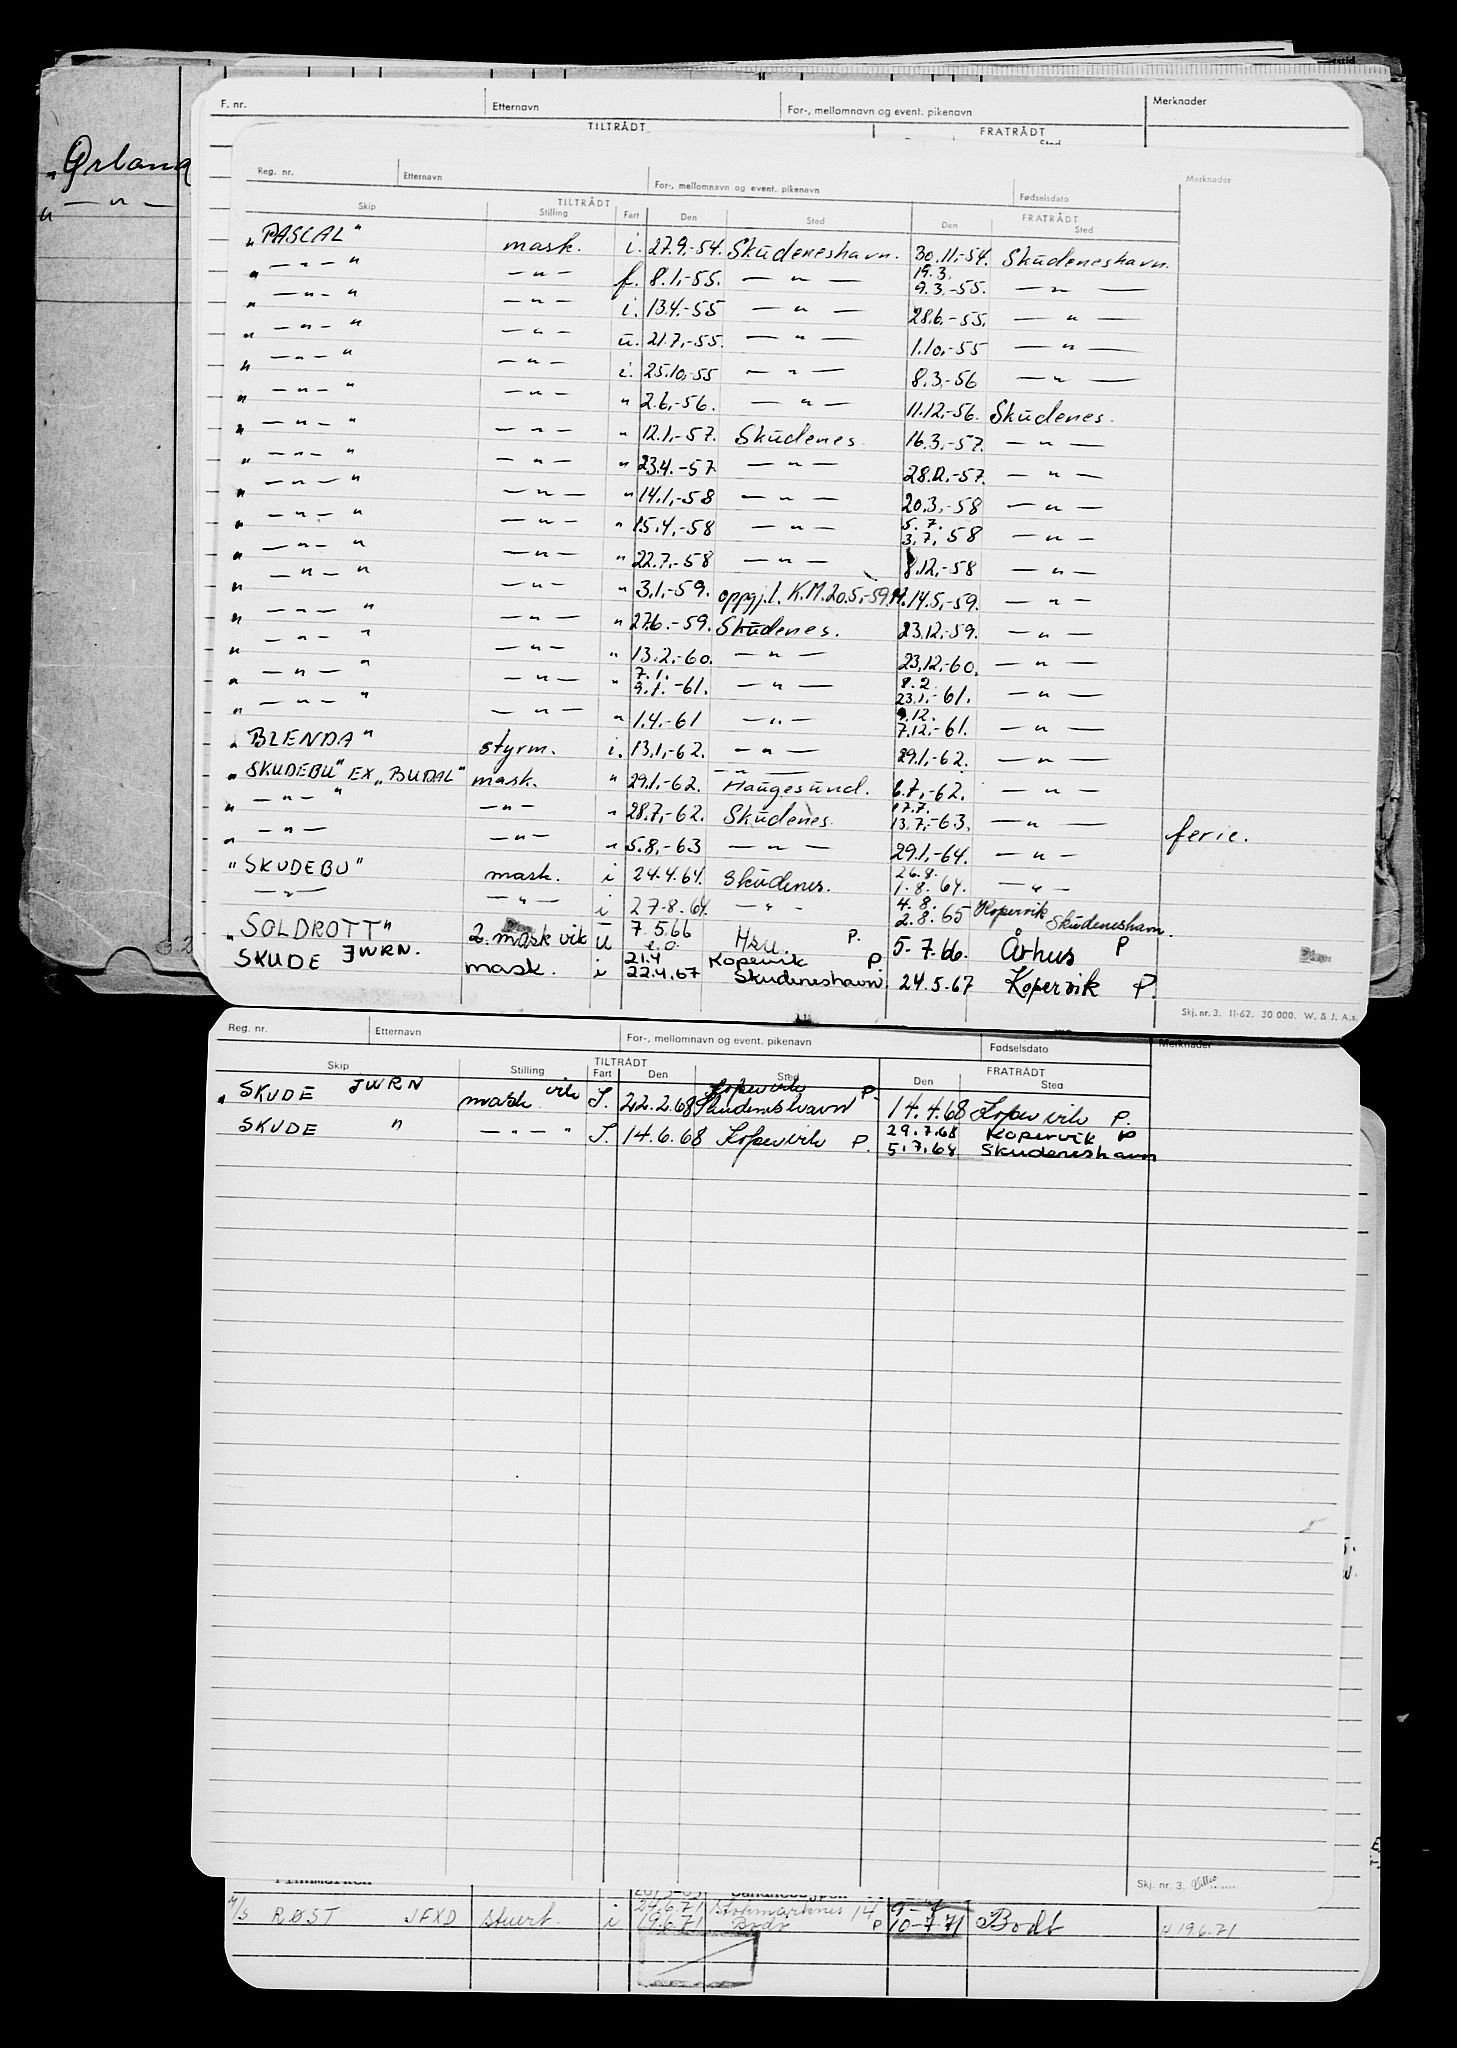 F. nr. Etternavn For-, mellomnavn og event. pikenavn Merknader
TILTRÅDT FRATRÅDT
„Ørland
„ — „ —
Reg. nr. Etternavn For-, mellomnavn og event. pikenavn Fødselsdato Merknader
TILTRÅDT FRATRÅDT
Skip Stilling Fart Den Sted Den Sted
„PASCAL" mask. i. 27.9.-54. Skudeneshavn. 30.11.-54. Skudeneshavn.
„ — „ — " — „ — f. 8.1.-55. — „ — 19.3. 9.3.-55. — „ —
„ — „ — " — „ — i. 13.4.-55 — „ — 28.6.-55. — „ —
„ — „ — " — „ — u. 21.7.-55. — „ — 1.10.-55 — „ —
„ — „ — " — „ — i. 25.10.-55 — „ — 8.3.-56 — „ —
„ — „ — " — „ — " 2.6.-56. — „ — 11.12.-56. Skudenes.
„ — „ — " — „ — " 12.1.-57. Skudenes. 16.3.-57. — „ —
„ — „ — " — „ — " 23.4.-57 — „ — 28.12.-57. — „ —
„ — „ — " — „ — " 14.1.-58 — „ — 20.3.-58 — „ —
„ — „ — " — „ — " 15.4.-58 — „ — 5.7. 3.7.58 — „ —
„ — „ — " — „ — " 22.7.-58 — „ — 8.12.-58 — „ —
„ — „ — " — „ — " 3.1.-59. oppgj.t. K.M.20.5.-59. M. 14.5.-59. — „ —
„ — „ — " — „ — " 27.6.-59. Skudenes. 23.12.-59. — „ —
„ — „ — " — „ — " 13.2.-60. — „ — 23.12.-60. — „ —
„ — „ — " — „ — " 7.1. 9.1.-61. — „ — 8.2. 23.1.-61. — „ —
„ — „ — " — „ — " 1.4.-61 — „ — 9.12. 7.12.-61. — „ —
„BLENDA" styrm. i. 13.1.-62. — „ — 29.1.-62. — „ —
„SKUDEBU" EX „BUDAL" mask. " 29.1.-62. — „ — Haugesund. 6.7.-62. — „ —
„ — „ — " — „ — " 28.7.-62. Skudenes. 17.7. 13.7.-63. — „ — ferie.
„ — „ — — „ — " 5.8.-63 — „ — 29.1.-64. — „ —
„SKUDEBU" mask. i 24.4.64. Skudenes. 26.8. 1.8.64. — „ —
— „ — — „ — i 27-8.64. — „ — 4.8. 2.8.65 Kopervik Skudeneshavn.
„SOLDROTT" 2. mask vik u 7.5.66 e.o. Hsu. P. 5-7.66. Århus P
SKUDE JWRN. mask. i 21.4 22.4.67 Kopervik P. Skudeneshavn. 24.5.67 Kopervik P.
Skj. nr. 3. 11-62. 30 000. W. & J. A.s.
Reg. nr. Etternavn For-, mellomnavn og event. pikenavn Fødselsdato Merknader
TILTRÅDT FRATRÅDT
Skip Stilling Fart Den Sted Den Sted
„SKUDE JWRN mask vik I. 22.2.68 Kopervik P. Skudeneshavn 14.4.68 Kopervik P.
SKUDE " — „ — " I. 14.6.68 Kopervik P. 29.7.68 Kopervik P
5.7.68 Skudeneshavn
Skj. nr. 3.
M/S RØST JFXD stuert. i 24.6.71 Stokmarknes 14
19.6.71 Bodø P 10-7.71 Bodø 4 19.6.71